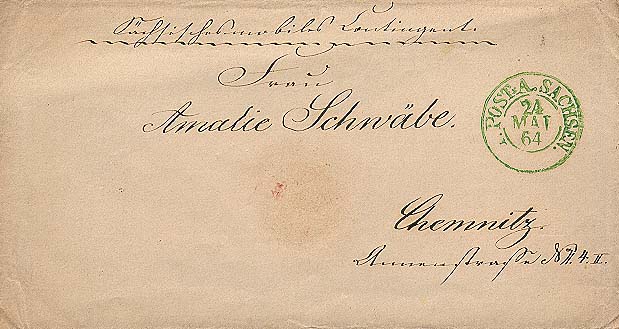 Sächsisches mobiles Contingent.
Frau
Amalie Schwäbe.
Chemnitz.
Annenstraße № 4. II.
F. POST. A. SACHSEN.
24
MAI
64